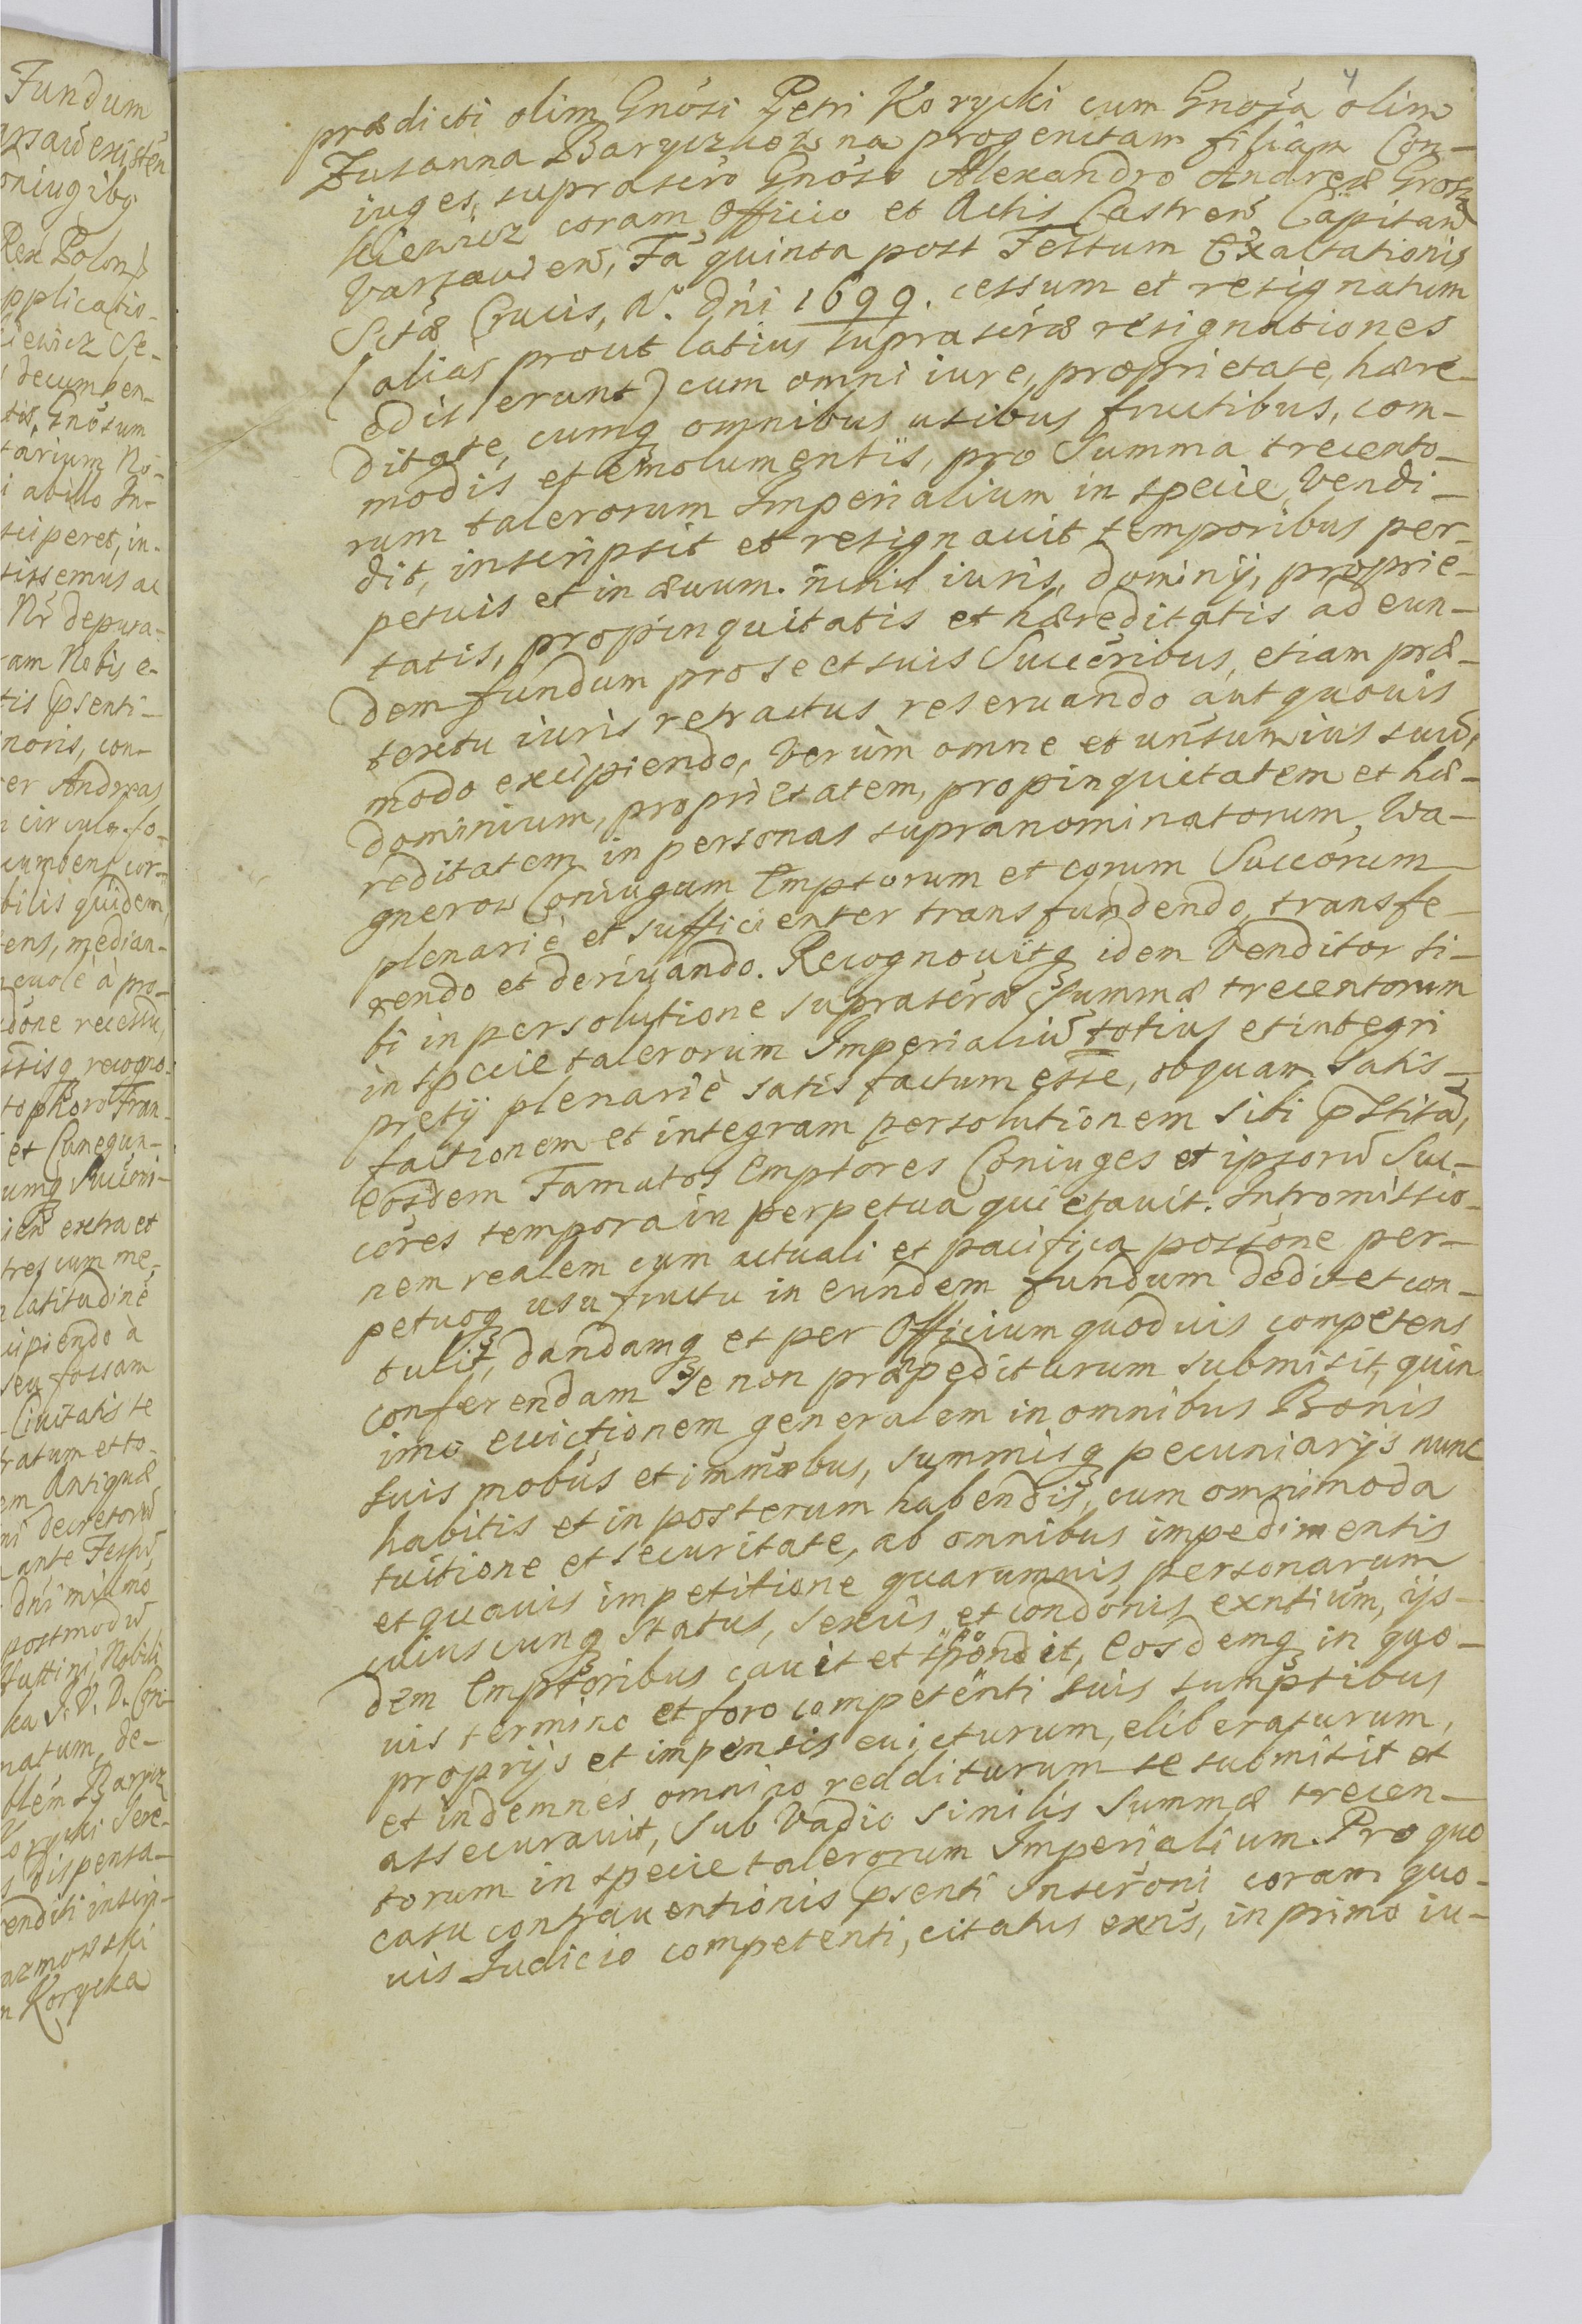 Fundum
oniugibg
Rex Polon
pplicatio-
iewicz Se-
decumben-
tis, Gnosum
tarium No-
i ab illo In-
sciperet, in-
tissemus ac
Nr depura-
ram Nobis e-
tis Psenti-
noris, con-
er Andreas
cumbens cor-
bilis quidem,
ens, median-
evole à pro-
done recessu,
ssisq recogno-
tophoro Fran-
et Cunegun-
umq Succori-
ien extra et
tres cum me-
latitudine
cipiendo à
seu fossam
Civitatis te
ratum et to-
em Antiquæ
ni decretorū
ante Festū
dni milmo
postmodū
Iustini, Nobili
ka I. V. D. Con-
natum, de-
blem Barycz
Korycki Secre-
s dispensa-
enditi inscrip-
azmowski
n Korycka
4
prædicti olim Gnosi Petri Korycki cum Gnosa olim
Zusanna Baryczkowna progenitam filiam Con-
iuges, suprascro Gnoso Alexandro Andreæ Grosz
kiewicz coram Officio et Actis Castren Capitan
Varsavien, Fa quinta post Festum Exaltationis
Sctæ Crucis, A. Dni 1699. cessum et resignatum
(alias prout latius suprascræ resignationes
edisserunt) cum omni iure, proprietate, hære-
ditate, cumq omnibus usibus fructibus, com-
modis et emolumentis, pro Summa trecento-
rum talerorum Imperialium in specie, vendi-
dit, inscripsit et resignavit temporibus per-
petuis et in ævum. nihil iuris, dominij, proprie-
tatis, propinquitatis et hæreditatis ad eun-
dem fundum pro se et suis Succeribus, etiam præ-
textu iuris retractus reservando aut quovis
modo excipiendo, Verùm omne et unsum ius suū,
dominium, proprietatem, propinquitatem et hæ-
reditatem in personas supranominatorum, Wa-
gnerow Coniugum Emptorum et eorum Succorum
plenariè et sufficienter transfundendo, transfe-
rendo et derivando. Recognovitq idem Venditor si-
bi in persolutione suprascræ Summæ trecentorum
in specie talerorum Imperialiū totius et integri
pretij plenariè satisfactum esse, ob quam satis-
factionem et integram persolutionem sibi pstitā,
Eosdem Famatos Emptores Coniuges et ipsorū Suc-
cores tempora in perpetua quietavit. Intromissio-
nem realem cum actuali et pacifica possone per-
petuoq usufructu in eundem fundum dedit et con-
tulit, dandamq et per Officium quodvis competens
conferendam se non præpediturum submisit, quin
imo evictionem generalem in omnibus Bonis
suis mobus et immobus, summisq pecuniarijs nunc
habitis et in posterum habendis, cum omnimoda
tuitione et securitate, ab omnibus impedimentis
et quavis impetitione quarumvis personarum
cuiuscunq status, sexus et condonis exntium, ijs-
dem Emptoribus cavit et spondit, Eosdemq in quo-
vis termino et foro competenti suis sumptibus
proprijs et impensis evicturum, eliberaturum,
et indemnes omnino redditurum se submisit et
assecuravit, sub Vadio similis Summæ trecen-
torum in specie talerorum Imperialium. Pro quo
casu contraventionis psenti Inscroni coram quo-
vis Iudicio competenti, citatus exns, in primo iu-